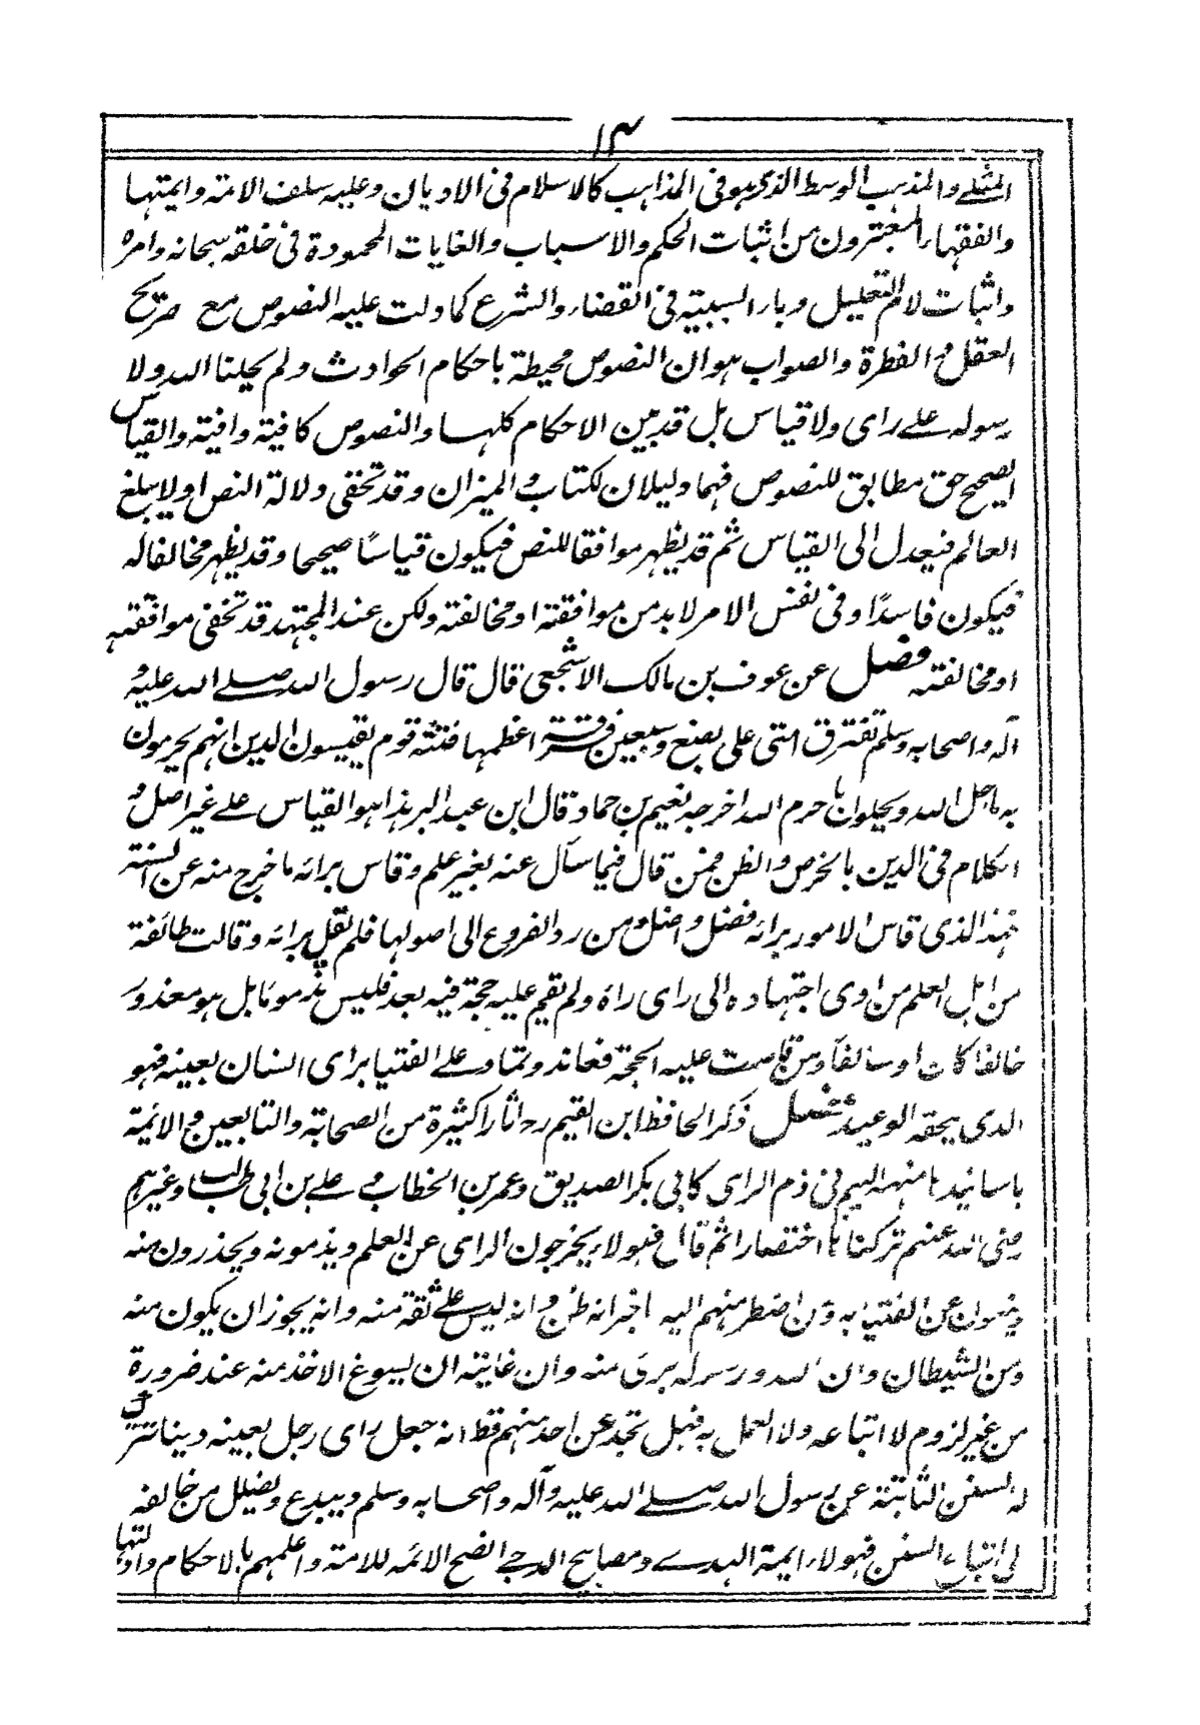 ١٣
المثلى والمذهب الوسط الذى هو فى المذاهب كالاسلام فى الاديان وعليه سلف الامة وايمتها
والفقهاء المعتبرون من اثبات الحكم والاسباب والغايات المحمودة فى خلقه سبحانه وامره
واثبات لام التعليل وباء السببية فى القضاء والشرع كما دلت عليه النصوص مع صريح
العقل والفطرة والصواب هو ان النصوص محيطة باحكام الحوادث ولم يحلنا الله ولا
رسوله على راى ولا قياس بل قد بين الاحكام كلها والنصوص كافية وافية والقياس
الصحيح حق مطابق للنصوص فهما دليلان لكتاب والميزان وقد تخفى دلالة النص او لا يبلغ
العالم فيعدل الى القياس ثم قد يظهر موافقا للنص فيكون قياسًا صحيحا وقد يظهر مخالفا له
فيكون فاسدًا وفى نفس الامر لابد من موافقته او مخالفته ولكن عند المجتهد قد تخفى موافقته
او مخالفته فصل عن عوف بن مالك الاشجعى قال قال رسول الله صلى الله عليه و
آله واصحابه وسلم تفترق امتى على بضع وسبعين فرقة اعظمها فتنة قوم يقيسون الدين انهم يحرمون
به ما حل الله ويحلون ما حرم الله اخرجه نعيم بن حماد قال ابن عبد البر هذا هو القياس على غير اصل و
الكلام فى الدين بالخرص والظن فمن قال فيما سأل عنه بغير علم وقاس برائه ما خرج منه عن السنة
فهذا الذى قاس الامور برائه فضل واضل ومن رد الفروع الى اصولها فلم نقل برائه وقالت طائفة
من اهل العلم من ادى اجتهاده الى راى راه ولم تقم عليه حجة فيه بعد فليس مذمومًا بل هو معذور
خالفا كان او سالفاً ومن قامت عليه الحجة فعاند وتمادى على الفتيا براى انسان بعينه فهو
الذى يحقه الوعيد فصل ذكر الحافظ ابن القيم رح اثارا كثيرة من الصحابة والتابعين والائمة
باسانيدنا منه اليهم فى ذم الراى كابى بكر الصديق وعمر بن الخطاب و على بن ابى طالب وغيرهم
رضى الله عنهم تركناها اختصارا ثم قال فهولاء يخرجون الراى عن العلم ويذمونه ويحذرون منه
وينهون عن الفتيا به ومن اضطر منهم اليه اخبر انه ظن وانه ليس على ثقة منه وانه يجوز ان يكون منه
ومن الشيطان وان الله ورسوله برئ منه وان غايته ان يسوغ الاخذ منه عند ضرورة
من غير لزوم لا اتباعه ولا العمل به فهل تجد عن احد منهم قط انه جعل راى رجل بعينه دينا تترك
له السنن الثابتة عن رسول الله صلى الله عليه وآله واصحابه وسلم ويبدع ويضلل من خالفه
الى اتباع السنن فهولاء ايمة الهدى ومصابيح الدجى انصح الائمه للامة واعلمهم بالاحكام وادلتها